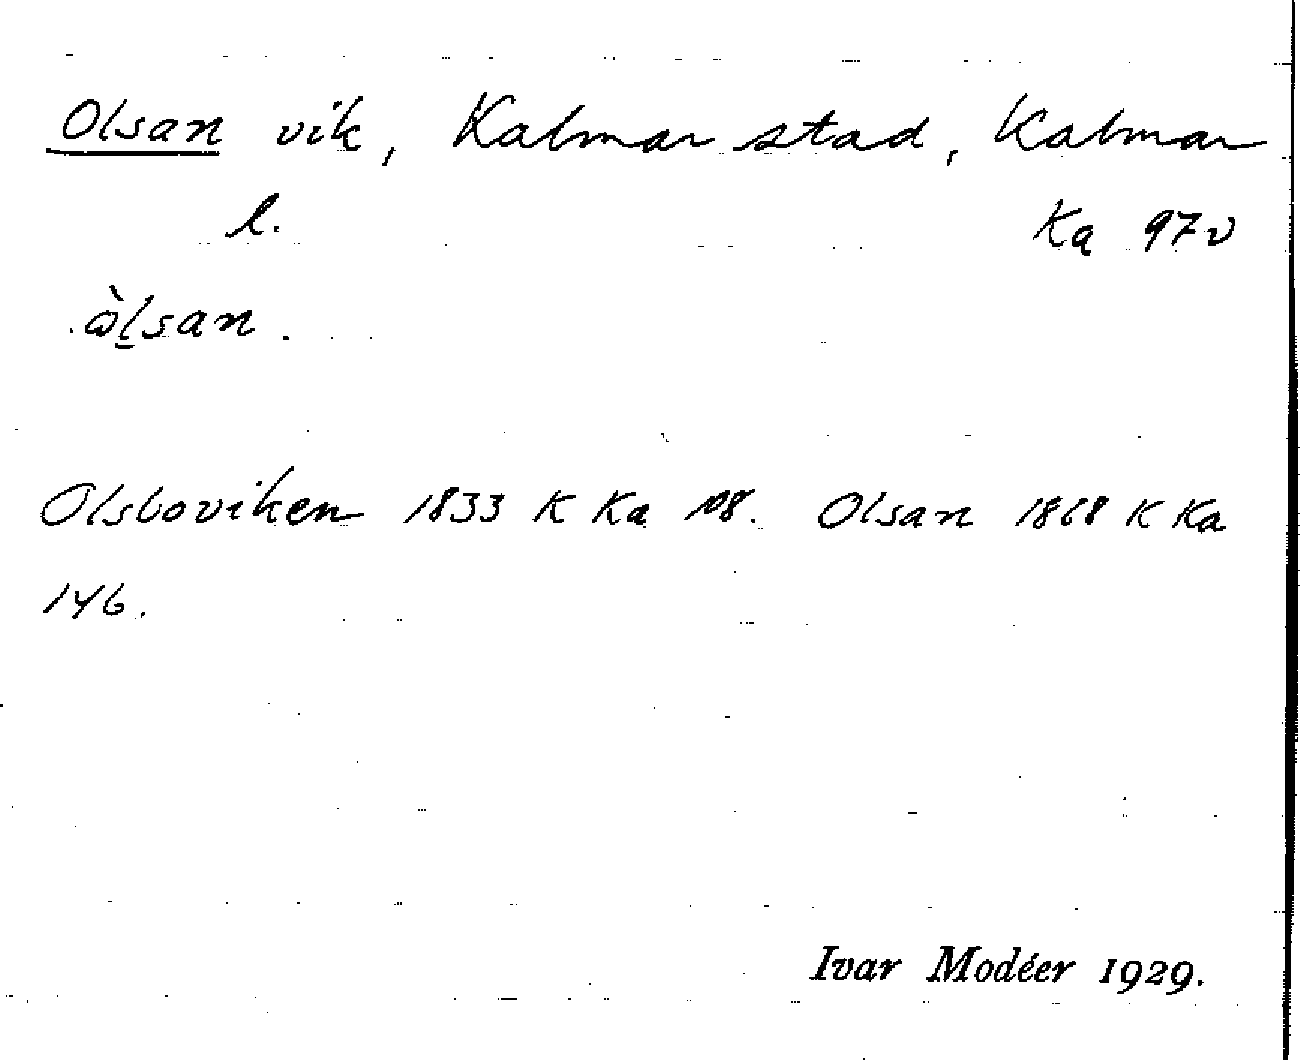 Olsan vik, Kalmar stad, Kalmar
l. Ka 97v
òl̲san.
Olsboviken 1833 K Ka 108. Olsan 1868 K Ka
146.
Ivar Modéer 1929.